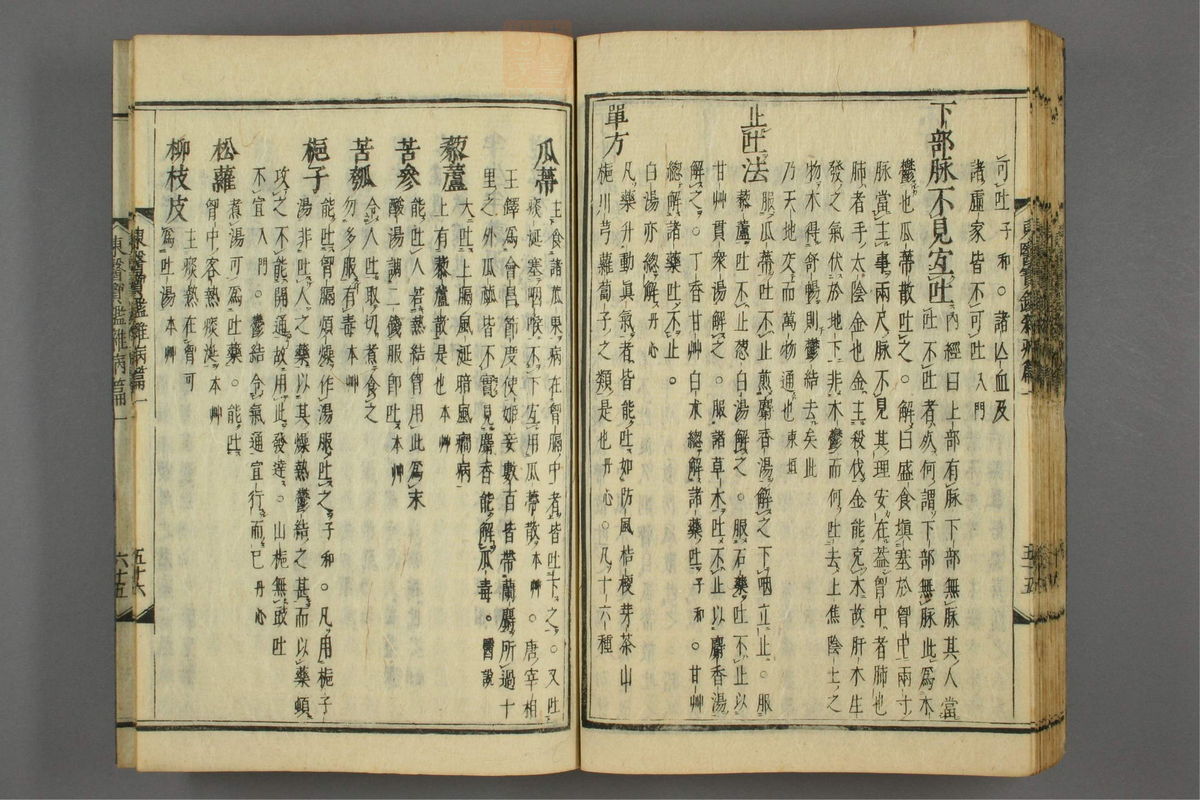 可吐子和○諸亾血及
諸虛家皆不可吐入門
下部脉不見宐吐
內經曰上部有脉下部無脉其人當
吐不吐者死何謂下部無脉此爲木
鬱也瓜蒂散吐之○解曰盛食塡塞於胷中兩寸
脉當主事兩尺脉不見其理安在盖胷中者肺也
肺者手太陰金也金主殺伐金能克木故肝木生
發之氣伏於地下非木鬱而何吐去上焦陰土之
物木得舒暢則鬱結去矣此
乃天地交而萬物通也東垣
止吐法
服瓜蒂吐不止煎麝香湯解之下咽立止○服
藜蘆吐不止葱白湯解之○服石藥吐不止以
甘艸貫衆湯解之○服諸草木吐不止以麝香湯
解之○丁香甘艸白朮緫解諸藥吐子和○甘艸
緫解諸藥吐不止○
白湯亦緫解丹心
單方
凡藥升動眞氣者皆能吐如防風桔梗芽茶山
梔川芎蘿蔔子之類是也丹心○凡十六種
瓜蒂
主食諸瓜果病在胷膈中者皆吐下之○又吐
痰涎塞咽喉不下宐用瓜蒂散本艸○唐宰相
王鐸爲會昌節度使姬妾數百皆帶蘭麝所過十
里之外瓜蔕皆不實見麝香能解瓜毒○醫說
藜蘆
大吐上膈風涎暗風癎病
上有藜蘆散是也本艸
苦參
能吐人若熱結胷用此爲末
酸湯調二錢服卽吐本艸
苦瓠
令人吐取切煮食之
勿多服有毒本艸
梔子
能吐胷膈煩燥作湯服吐之子和○凡用梔子
湯非吐人之藥以其燥熱鬱結之甚而以藥頓
攻之不能開通故用此發達○山梔無豉吐
不宜入門○鬱結令氣通宜行而已丹心
松蘿
煮湯可爲吐藥○能吐
胷中客熱痰涎本艸
柳枝皮
主痰熱在胷可
爲吐湯本艸
東醫寶鑑雜病篇一
五十五
東醫寶鑑雜病篇一
五十六
東醫寶鑑雜病篇一
六十五